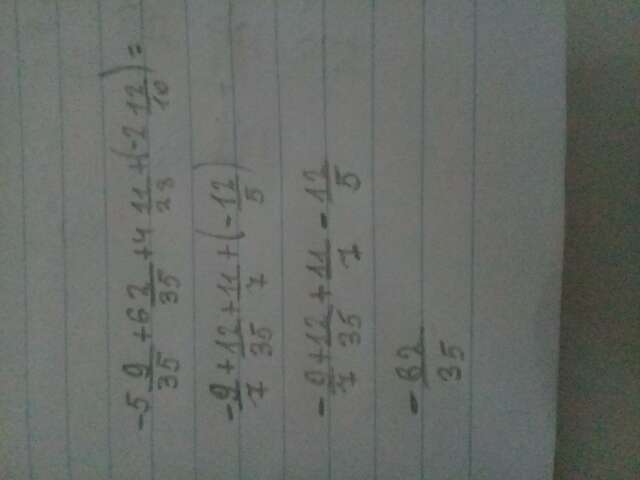 -5 9/35 + 6 2/35 + 4 11/28 + (-2 12/10) =
-9/7 + 12/35 + 11/7 + (-12/5)
-9/7 + 12/35 + 11/7 - 12/5
-62/35